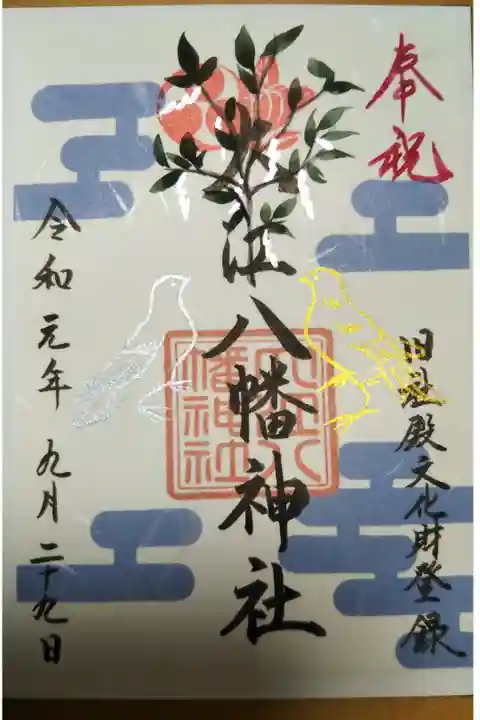 奉祝
旧社殿文化財登録
江八幡神社
幡神社
令和元年九月二十九日